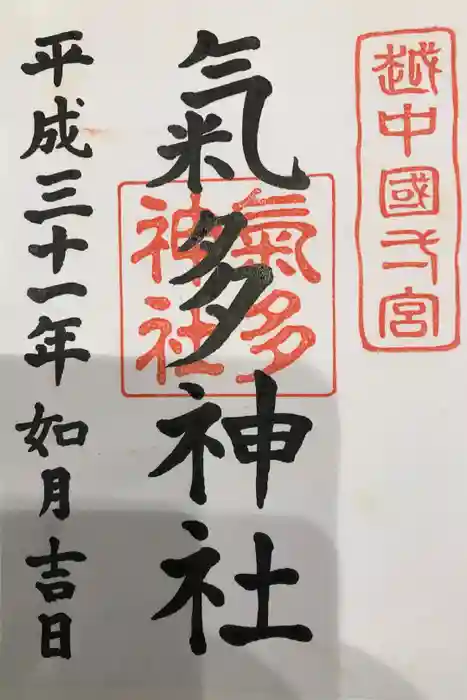 越中國一宮
氣多神社
氣多
神社
平成三十一年如月吉日